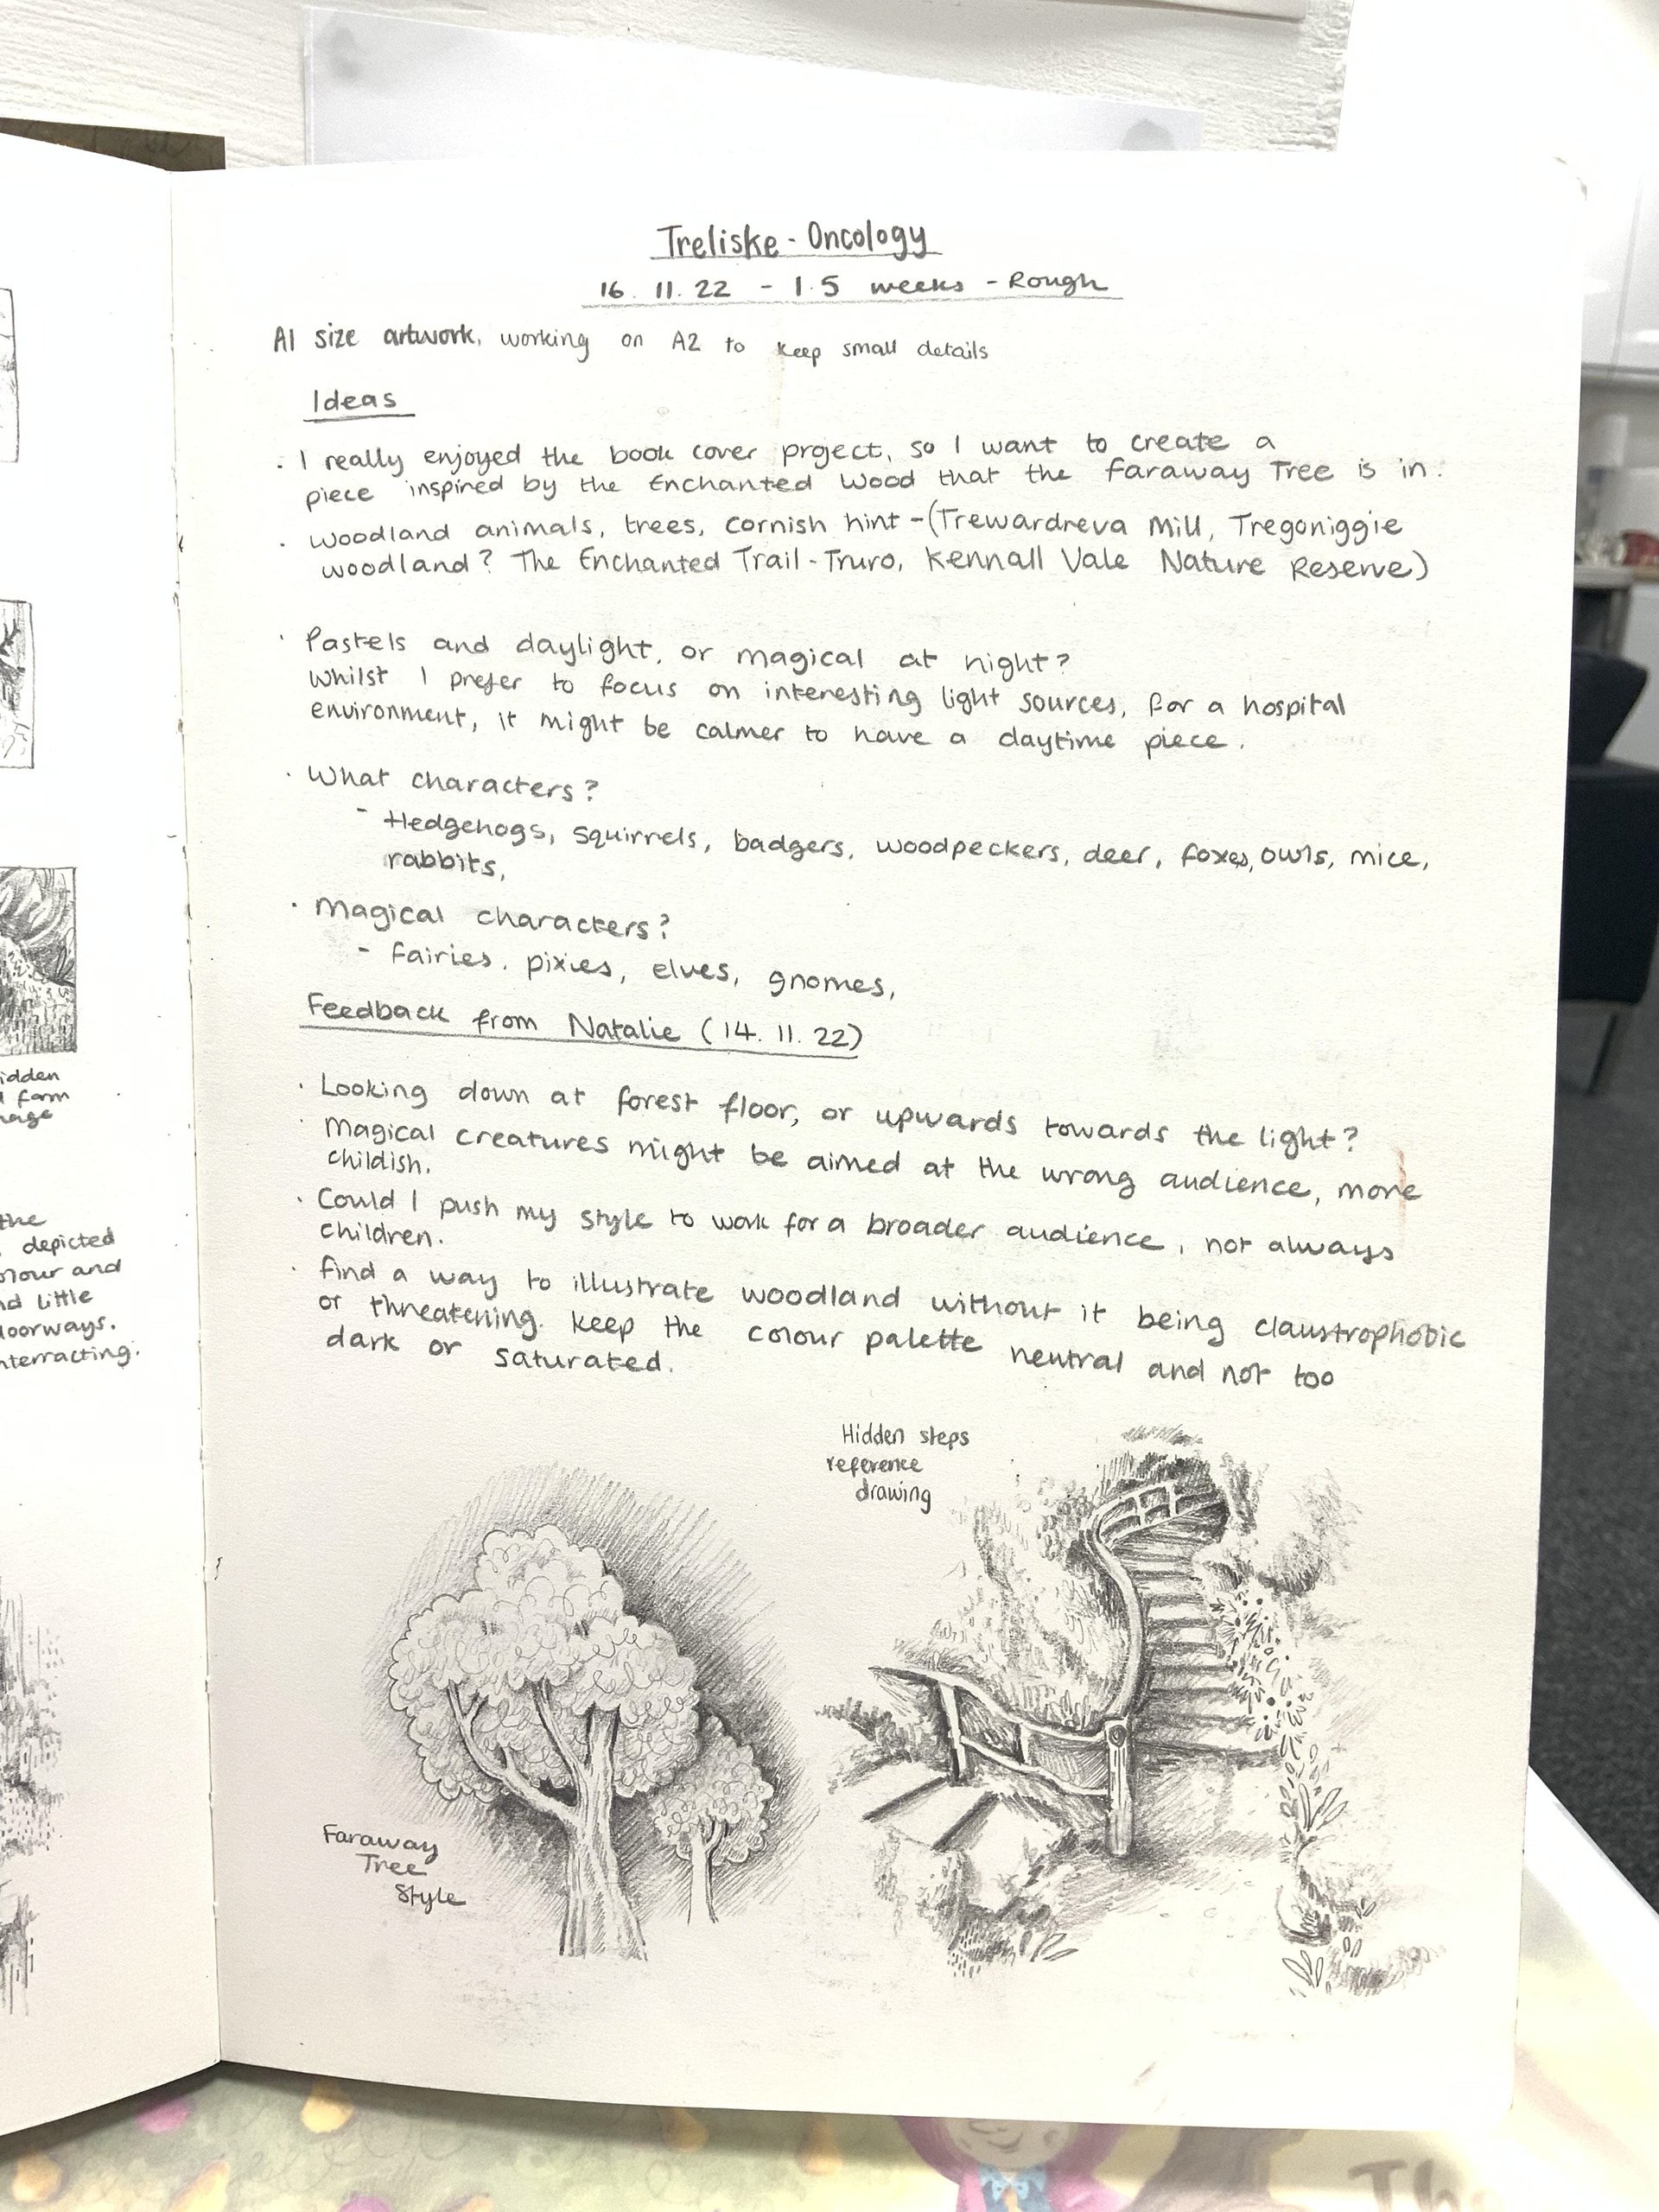 idden
d form
nage
the
depicted
olour and
nd little
doorways.
nterracting.
Treliske - Oncology
16. 11. 22 - 1.5 weeks - Rough
A1 size artwork, working on A2 to keep small details
Ideas
· I really enjoyed the book cover project, so I want to create a
piece inspired by the Enchanted Wood that the Faraway Tree is in.
· Woodland animals, trees, Cornish hint - (Trewardreva Mill, Tregoniggie
woodland? The Enchanted Trail - Truro, Kennall Vale Nature Reserve)
· Pastels and daylight, or magical at night?
Whilst I prefer to focus on interesting light sources, for a hospital
environment, it might be calmer to have a daytime piece.
· What characters?
- Hedgehogs, squirrels, badgers, woodpeckers, deer, foxes, owls, mice,
rabbits,
· Magical characters?
- Fairies, pixies, elves, gnomes,
Feedback from Natalie (14. 11. 22)
· Looking down at forest floor, or upwards towards the light?
· Magical creatures might be aimed at the wrong audience, more
childish.
· Could I push my style to work for a broader audience, not always
children.
· Find a way to illustrate woodland without it being claustrophobic
or threatening. Keep the colour palette neutral and not too
dark or saturated.
Hidden steps
reference
drawing
Faraway
Tree
Style
Th